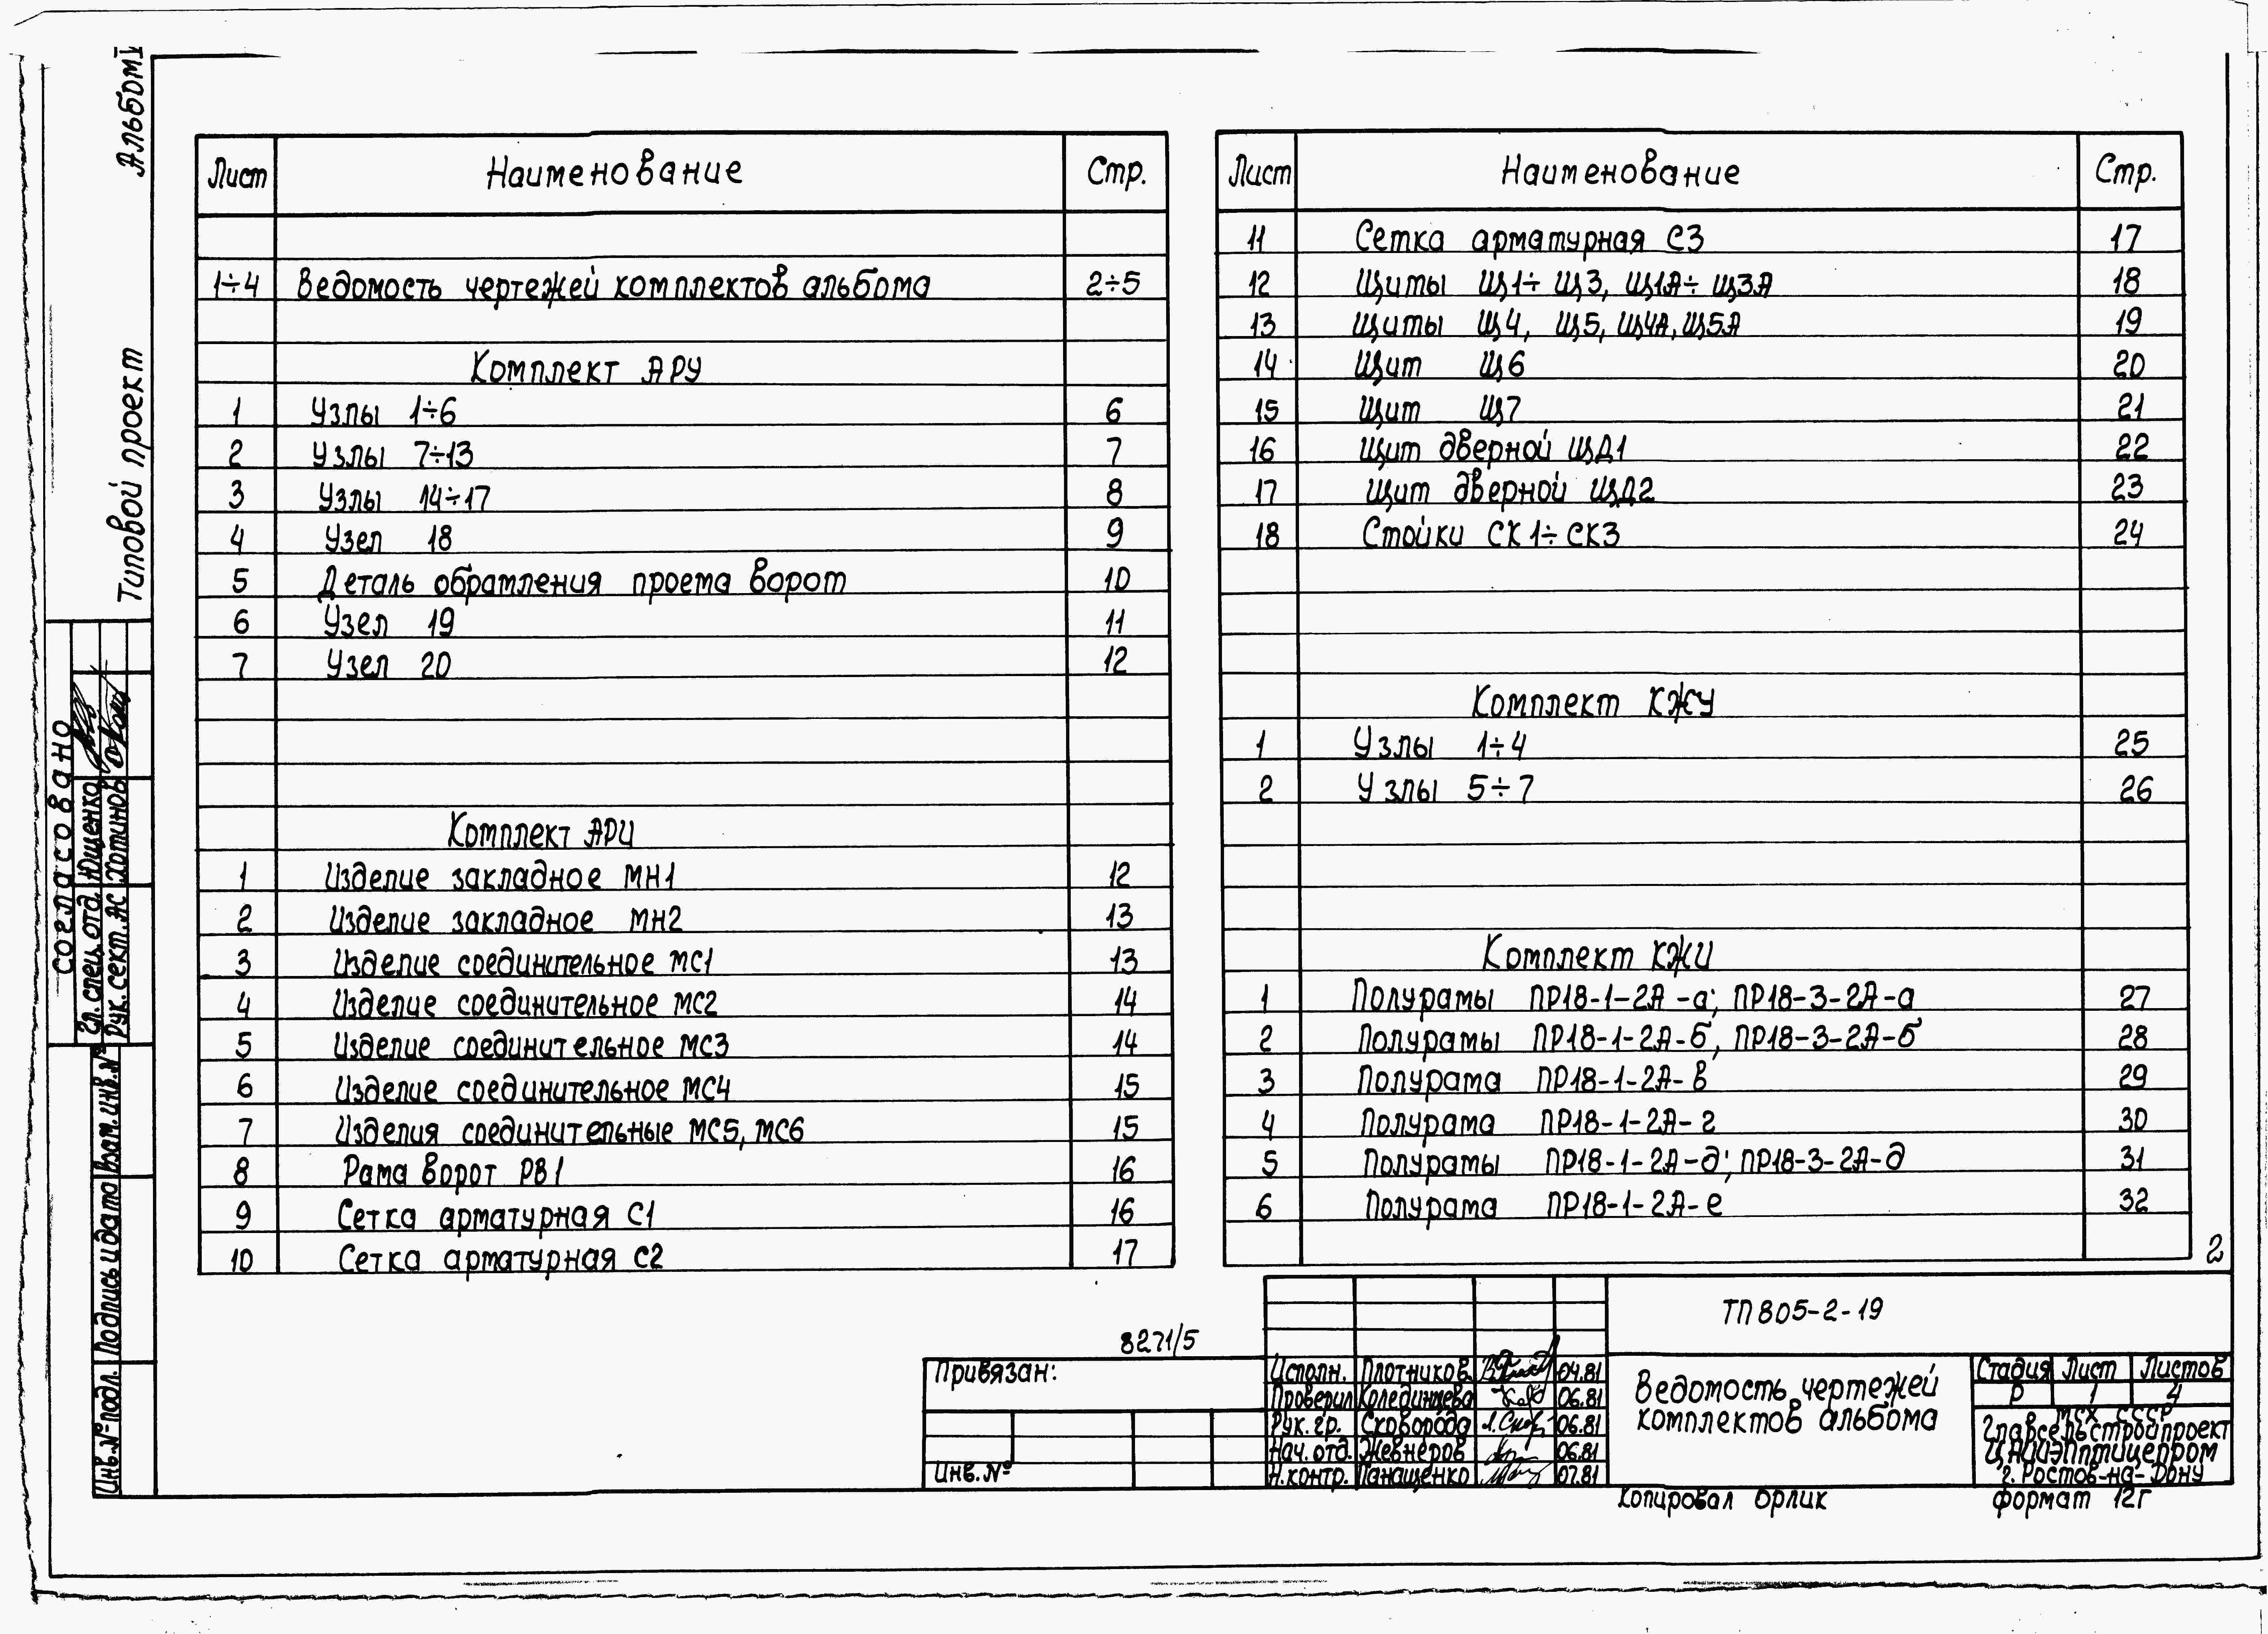 Альбом
Типовой проект
Лист Наименование Стр.
1÷4 Ведомость чертежей комплектов альбома 2÷5
Комплект АРУ
1 Узлы 1÷6 6
2 Узлы 7÷13 7
3 Узлы 14÷17 8
4 Узел 18 9
5 Деталь обрамления проема ворот 10
6 Узел 19 11
7 Узел 20 12
Комплект АРИ
1 Изделие закладное МН1 12
2 Изделие закладное МН2 13
3 Изделие соединительное МС1 13
4 Изделие соединительное МС2 14
5 Изделие соединительное МС3 14
6 Изделие соединительное МС4 15
7 Изделия соединительные МС5, МС6 15
8 Рама ворот РВ1 16
9 Сетка арматурная С1 16
10 Сетка арматурная С2 17
Лист Наименование Стр.
11 Сетка арматурная С3 17
12 Щиты Щ1÷ Щ3, Щ1А÷ Щ3А 18
13 Щиты Щ4, Щ5, Щ4А, Щ5А 19
14 Щит Щ6 20
15 Щит Щ7 21
16 Щит дверной ЩД1 22
17 Щит дверной ЩД2 23
18 Стойки СК1÷ СК3 24
Комплект КЖУ
1 Узлы 1÷4 25
2 Узлы 5÷7 26
Комплект КЖИ
1 Полурамы ПР18-1-2А-а; ПР18-3-2А-а 27
2 Полурамы ПР18-1-2А-б, ПР18-3-2А-б 28
3 Полурама ПР18-1-2А-в 29
4 Полурама ПР18-1-2А-г 30
5 Полурамы ПР18-1-2А-д; ПР18-3-2А-д 31
6 Полурама ПР18-1-2А-е 32
2
Согласовано
Гл. спец. отд. Ющенко
Рук. сект. АС Хотинов
Взам. инв. №
Подпись и дата
Инв. № подл.
8271/5
Привязан:
Инв. №
Исполн. Плотников 04.81
Проверил Колединцева 06.81
Рук. гр. Сковорода 06.81
Нач. отд. Жевнеров 06.81
Н. контр. Панащенко 07.81
ТП 805-2-19
Ведомость чертежей
комплектов альбома
Стадия Лист Листов
Р 1 4
МСХ СССР
Главсельстройпроект
ЦНИИЭПптицепром
г. Ростов-на-Дону
Копировал Орлик
Формат 12г